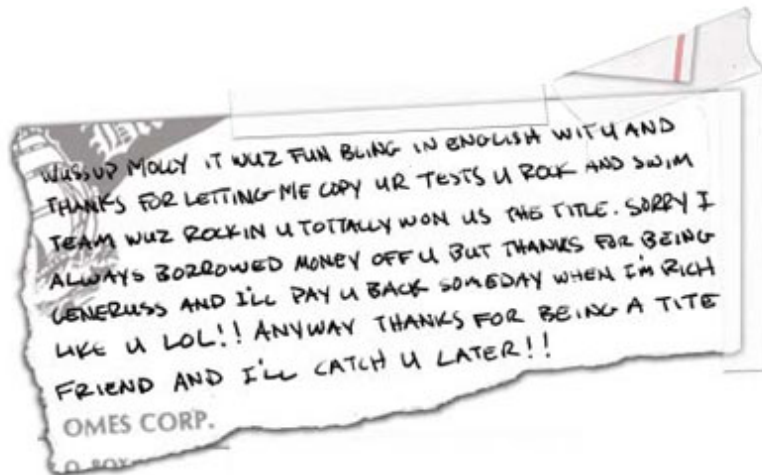 WUSSUP MOLLY IT WUZ FUN BEING IN ENGLISH WIT U AND
THANKS FOR LETTING ME COPY UR TESTS U ROCK AND SWIM
TEAM WUZ ROCKIN U TOTTALLY WON US THE TITLE. SORRY I
ALWAYS BORROWED MONEY OFF U BUT THANKS FOR BEING
GENERUSS AND I'LL PAY U BACK SOMEDAY WHEN I'M RICH
LIKE U LOL!! ANYWAY THANKS FOR BEING A TITE
FRIEND AND I'LL CATCH U LATER!!
OMES CORP.
O. BOX